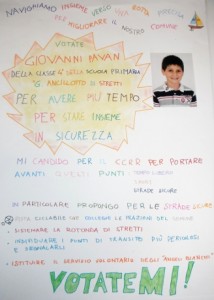 NAVIGHIAMO INSIEME VERSO UNA ROTTA PRECISA
PER MIGLIORARE IL NOSTRO COMUNE
VOTATE
GIOVANNI PAVAN
DELLA CLASSE DELLA SCUOLA PRIMARIA
"G. ANCILLOTTO" DI STRETTI
PER AVERE PIÙ TEMPO
PER STARE INSIEME
IN SICUREZZA
MI CANDIDO PER IL CCRR PER PORTARE
AVANTI QUESTI PUNTI: TEMPO LIBERO
STRADE SICURE
IN PARTICOLARE PROPONGO PER LE STRADE SICURE
PISTA CICLABILE CHE COLLEGHI LE FRAZIONI DEL COMUNE
SISTEMARE LA ROTONDA DI STRETTI
INDIVIDUARE I PUNTI DI TRANSITO PIÙ PERICOLOSI
E SEGNALARLI
ISTITUIRE IL SERVIZIO VOLONTARIO DEGLI "ANGELI BIANCHI"
VOTATEMI!